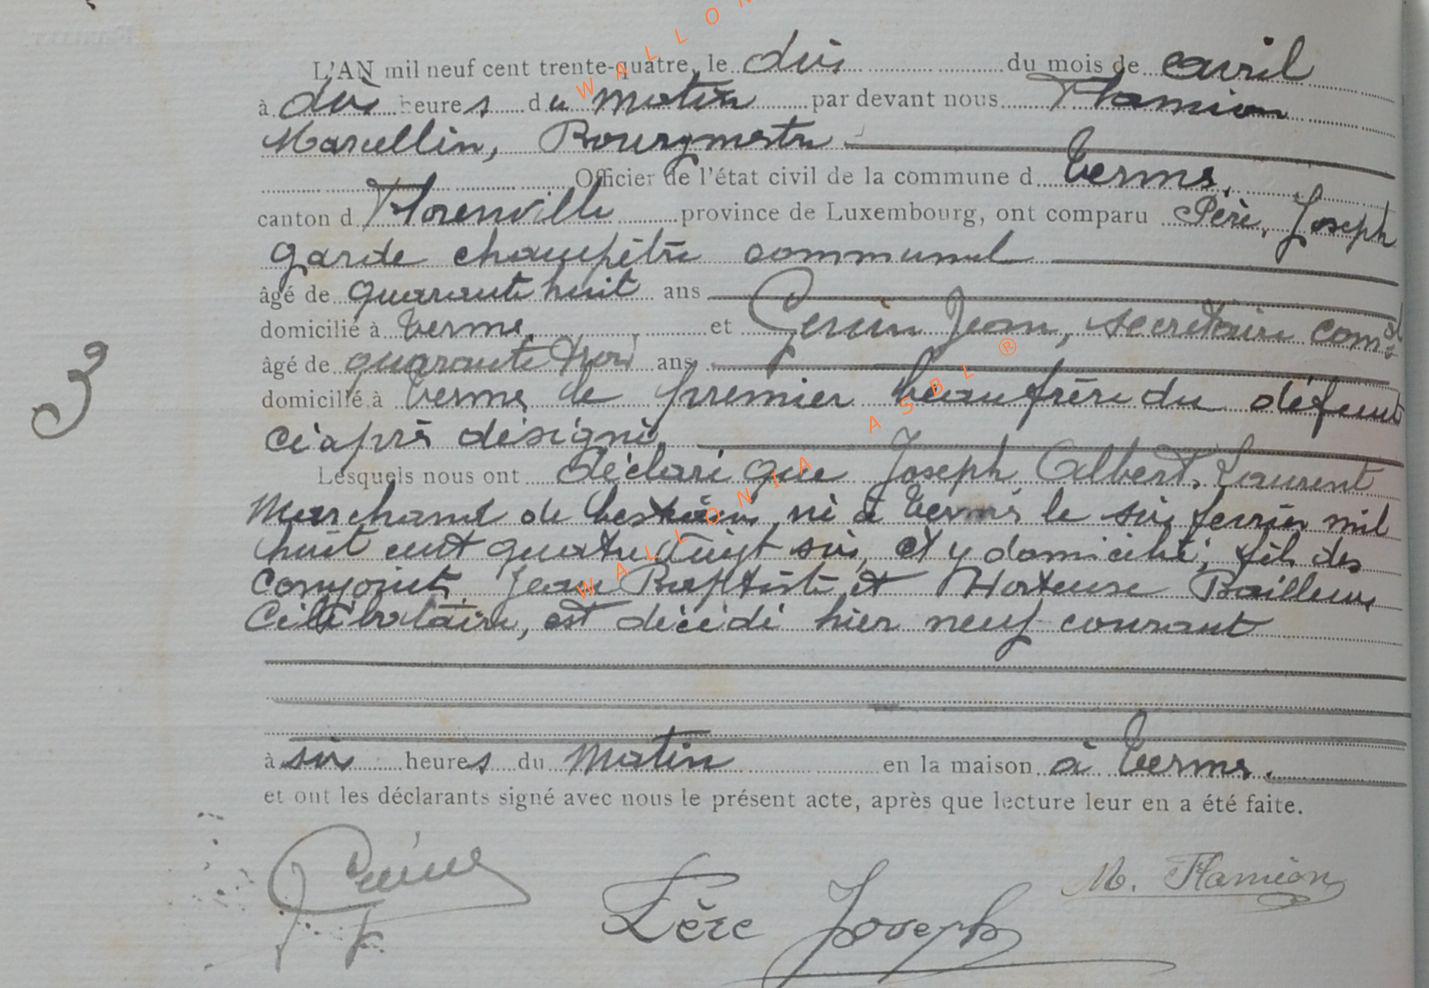 L'AN mil neuf cent trente-quatre, le dix du mois de avril
à dix heures du matin par devant nous Flamion
Marcellin, Bourgmestre
Officier de l'état civil de la commune d Termes,
canton d Florenville province de Luxembourg, ont comparu Père, Joseph
garde champêtre communal
âgé de quarante huit ans
domicilié à Termes, et Gérin Jean, secrétaire comal
âgé de quarante trois ans,
domicilié à Termes, le premier beau frère du défunt
ci après désigné,
3
Lesquels nous ont déclaré que Joseph Albert, Laurent
Marchand de bestiaux, né à Termes le six février mil
huit cent quatre vingt six, et y domicilié, fils des
conjoints Jean Baptiste et Hortense Bailleux
Célibataire, est décédé hier neuf courant
à six heures du matin en la maison à Termes.
et ont les déclarants signé avec nous le présent acte, après que lecture leur en a été faite.
Père Joseph
M. Flamion
WALLONIA ASBL ®